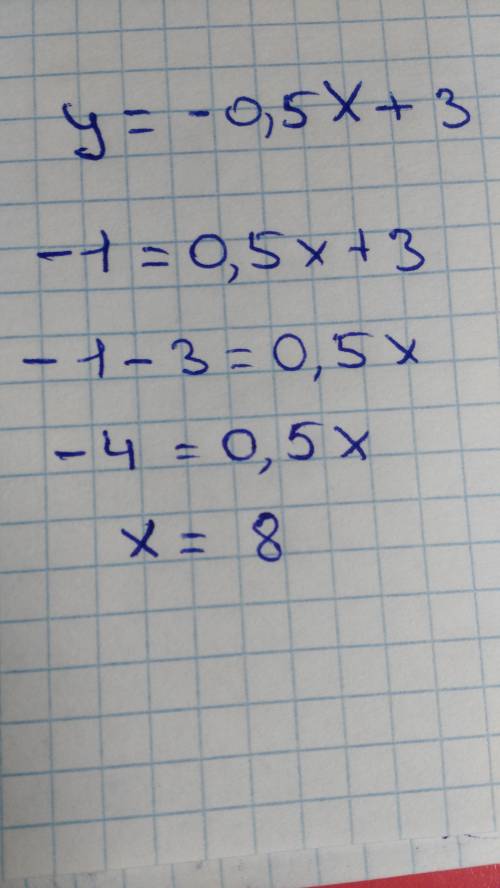 y = -0,5x + 3
-1 = 0,5x + 3
-1 - 3 = 0,5x
-4 = 0,5x
x = 8